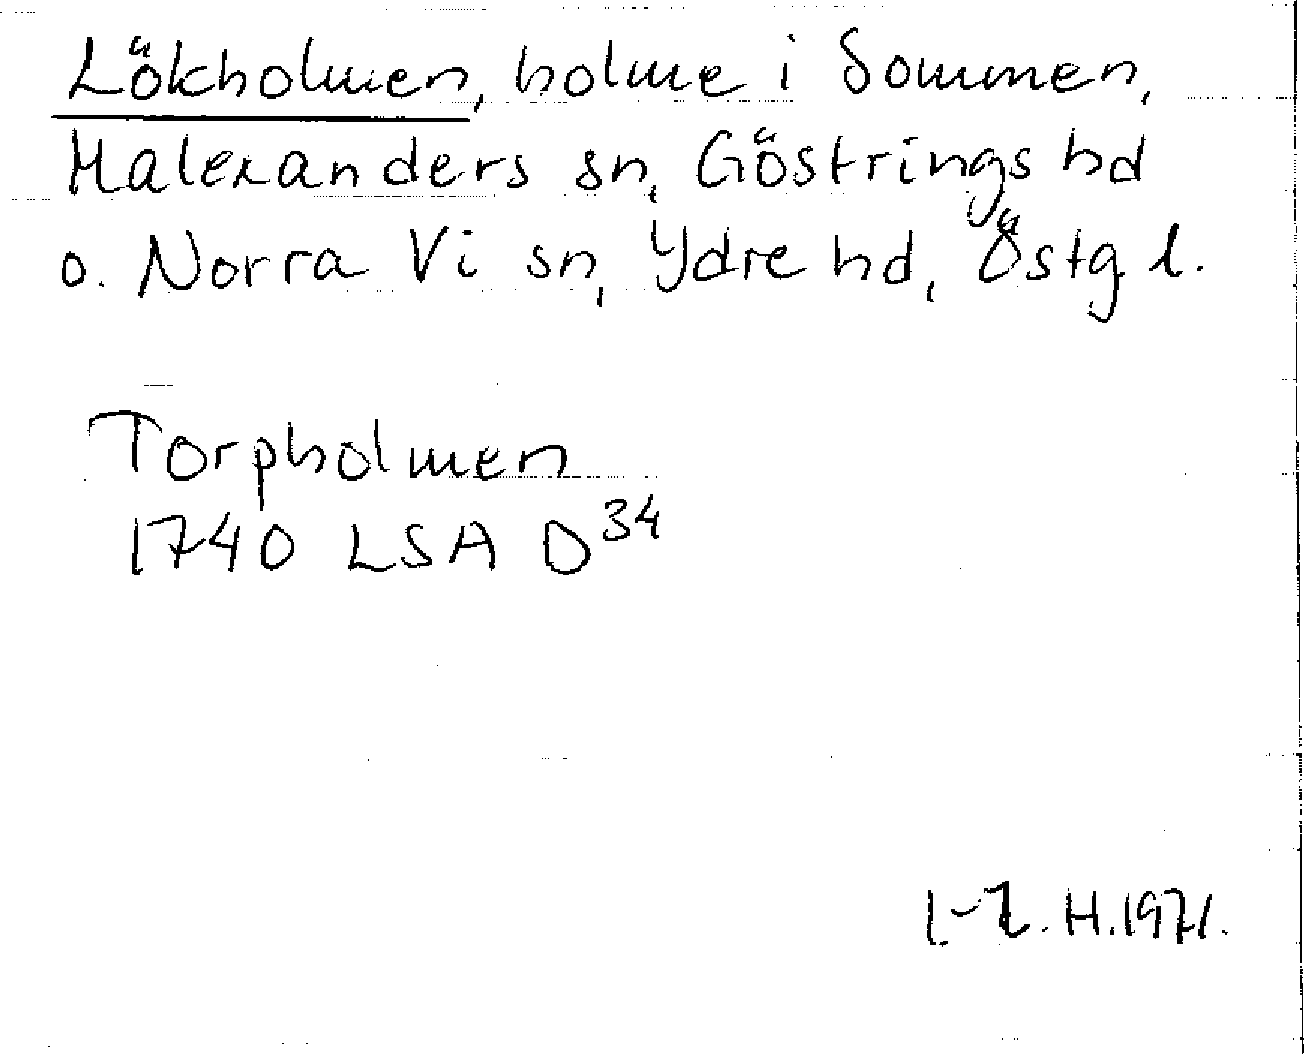 Lökholmen, holme i Sommen,
Malexanders sn, Göstrings hd
o. Norra Vi sn, Ydre hd, Östg l.
Torpholmen
1740 LSA D34
H. 1971.